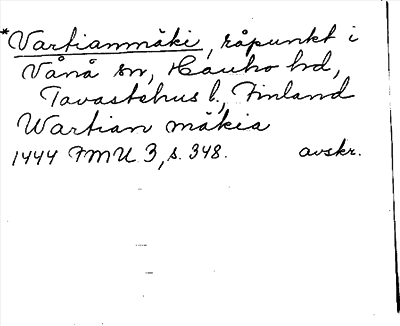 *Vartianmäki, råpunkt i
Vånå sn, Hauho hd,
Tavastehus l., Finland
Wartian mäkia
1444 FMU 3, s. 348. avskr.